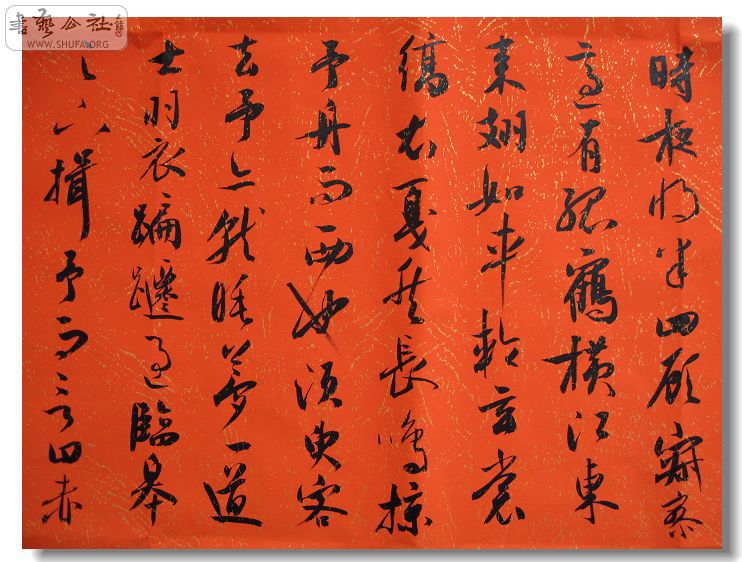 時夜將半四顧寂寥
適有孤鶴橫江東
來翅如車輪玄裳
縞衣戛然長鳴掠
予舟而西也須臾客
去予亦就睡夢一道
士羽衣蹁躚過臨皋
之下揖予而言曰赤
書藝公社
WWW.SHUFA.ORG